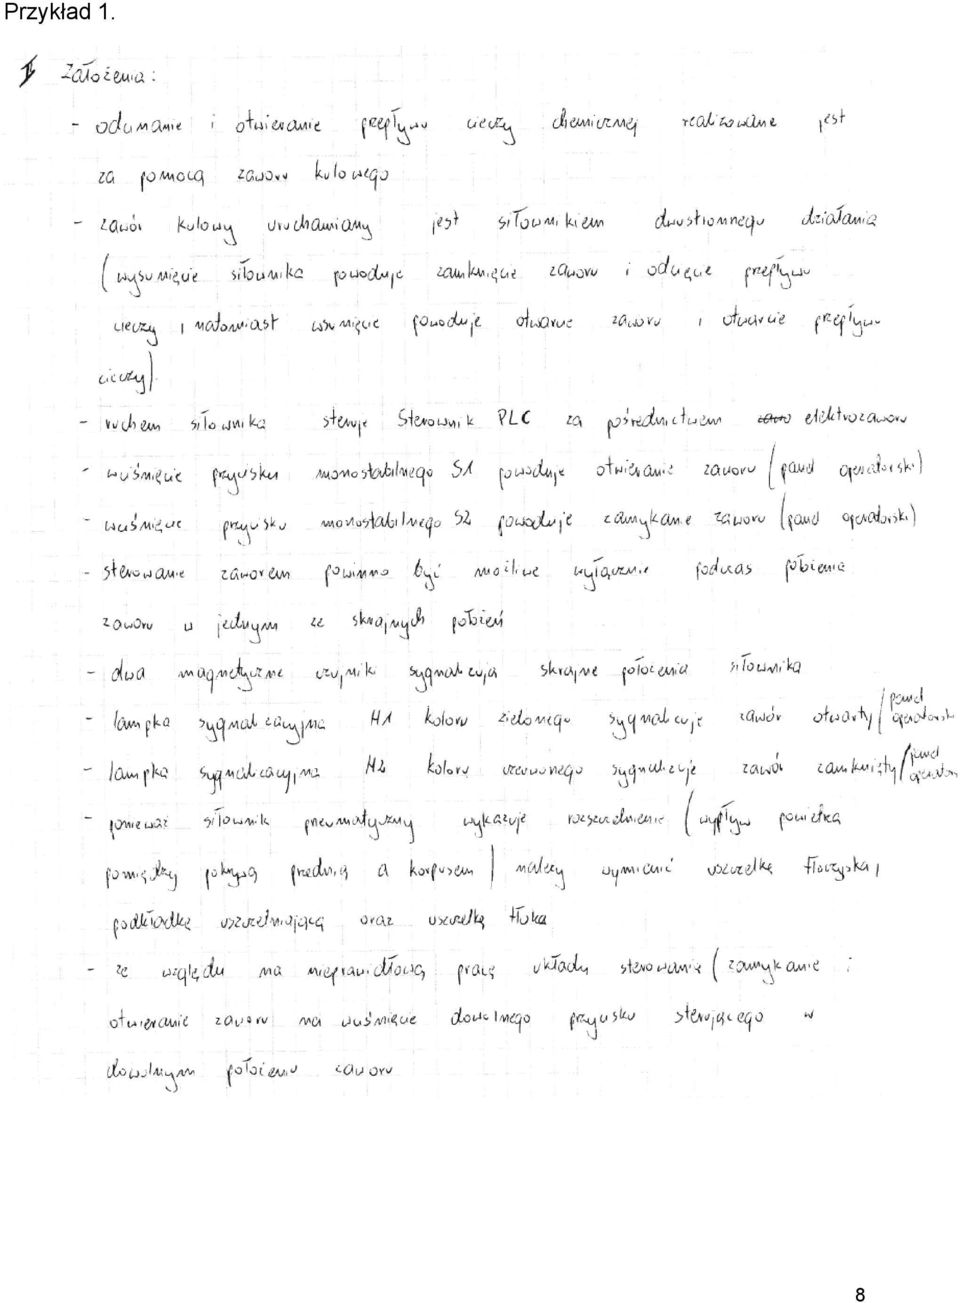 Przykład 1.
I Założenia:
- odcinanie i otwieranie przepływu cieczy chemicznej realizowane jest
za pomocą zaworu kulowego
- zawór kulowy uruchamiany jest siłownikiem dwustronnego działania
(wysunięcie siłownika powoduje zamknięcie zaworu i odcięcie przepływu
cieczy, natomiast wsunięcie powoduje otwarcie zaworu i otwarcie przepływu
cieczy).
- ruchem siłownika steruje Sterownik PLC za pośrednictwem elektrozaworu
- wciśnięcie przycisku monostabilnego S1 powoduje otwieranie zaworu (panel operatorski)
- wciśnięcie przycisku monostabilnego S2 powoduje zamykanie zaworu (panel operatorski)
- sterowanie zaworem powinno być możliwe wyłącznie podczas położenia
zaworu w jednym ze skrajnych położeń
- dwa magnetyczne czujniki sygnalizują skrajne położenia siłownika
- lampka sygnalizacyjna H1 koloru zielonego sygnalizuje zawór otwarty (panel
operatorski
- lampka sygnalizacyjna H2 koloru czerwonego sygnalizuje zawór zamknięty (panel
operator
- ponieważ siłownik pneumatyczny wykazuje rozszczelnienie (wypływ powietrza
pomiędzy pokrywą przednią a korpusem) należy wymienić uszczelkę tłoczyska,
podkładkę uszczelniającą oraz uszczelkę tłoka
- ze względu na nieprawidłową pracę układu sterowania (zamykanie i
otwieranie zaworu na wciśnięcie dowolnego przycisku sterującego w
dowolnym położeniu zaworu
8